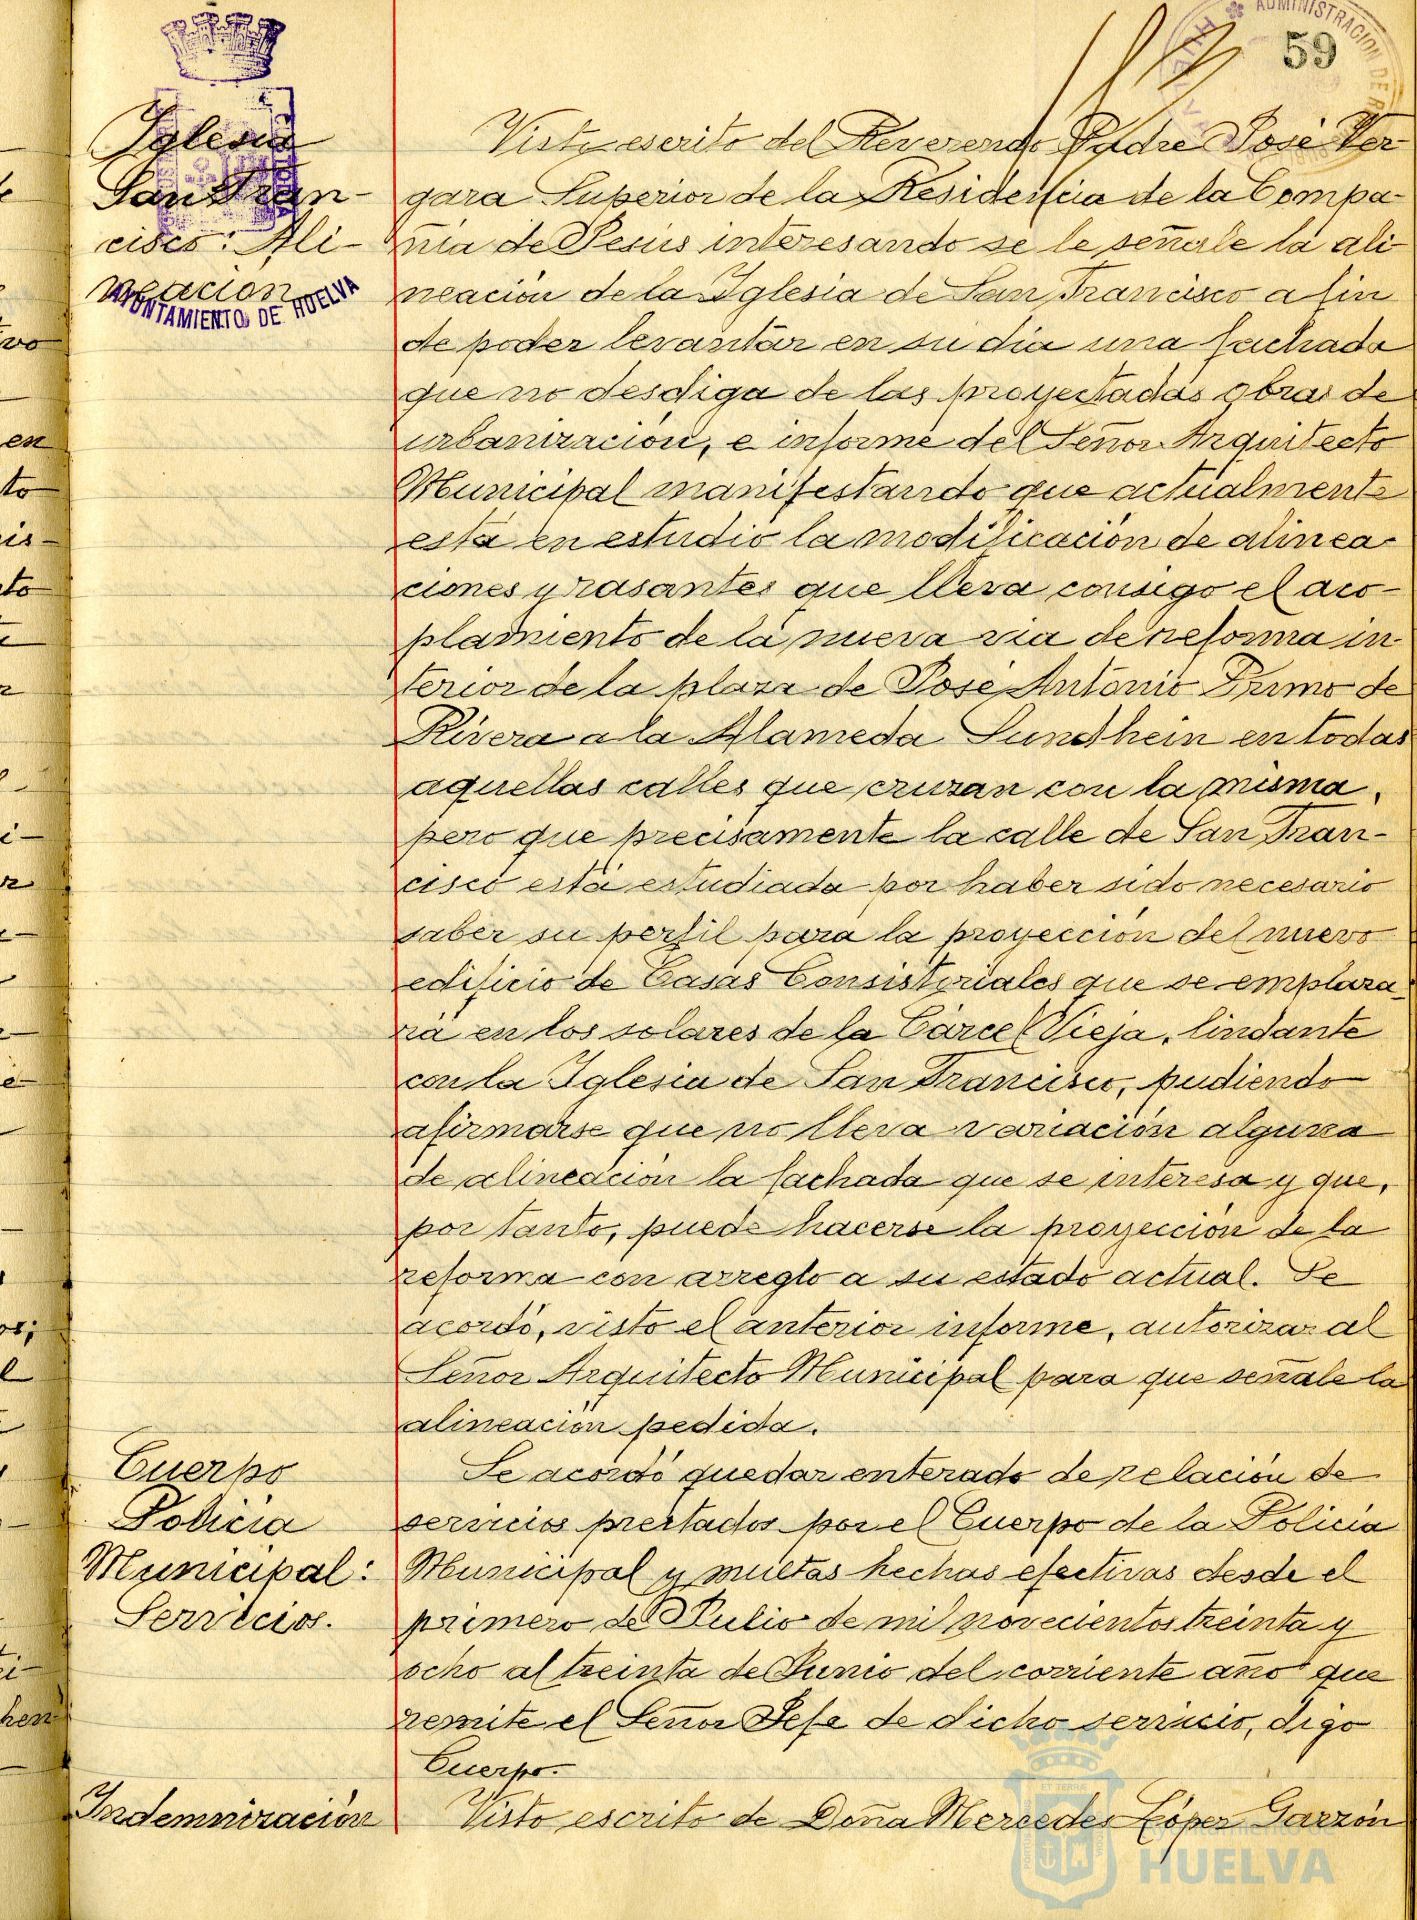 59
ADMINISTRACION DE R
HUELVA
Iglesia
San Fran-
cisco: Ali-
neación
AYUNTAMIENTO DE HUELVA
Visto escrito del Reverendo Padre José Ver-
gara Superior de la Residencia de la Compa-
ñia de Jesús interesando se le señale la ali-
neación de la Iglesia de San Francisco a fin
de poder levantar en su dia una fachada
que no desdiga de las proyectadas obras de
urbanización, e informe del Señor Arquitecto
Municipal manifestando que actualmente
está en estudio la modificación de alinea-
ciones y rasantes que lleva consigo el aco-
plamiento de la nueva via de reforma in-
terior de la plaza de José Antonio Primo de
Rivera a la Alameda Sundhein en todas
aquellas calles que cruzan con la misma,
pero que precisamente la calle de San Fran-
cisco está estudiada por haber sido necesario
saber su perfil para la proyección del nuevo
edificio de Casas Consistoriales que se emplaza-
rá en los solares de la Cárcel Vieja, lindante
con la Iglesia de San Francisco, pudiendo
afirmarse que no lleva variación alguna
de alineación la fachada que se interesa y que,
por tanto, puede hacerse la proyección de la
reforma con arreglo a su estado actual. Se
acordó, visto el anterior informe, autorizar al
Señor Arquitecto Municipal para que señale la
alineación pedida.
Cuerpo
Policia
Municipal:
Servicios.
Se acordó quedar enterado de relación de
servicios prestados por el Cuerpo de la Policia
Municipal y multas hechas efectivas desde el
primero de Julio de mil novecientos treinta y
ocho al treinta de Junio del corriente año que
remite el Señor Jefe de dicho servicio, digo
Cuerpo.
Indemnización
Visto escrito de Doña Mercedes López Garzón
Ayuntamiento de
HUELVA